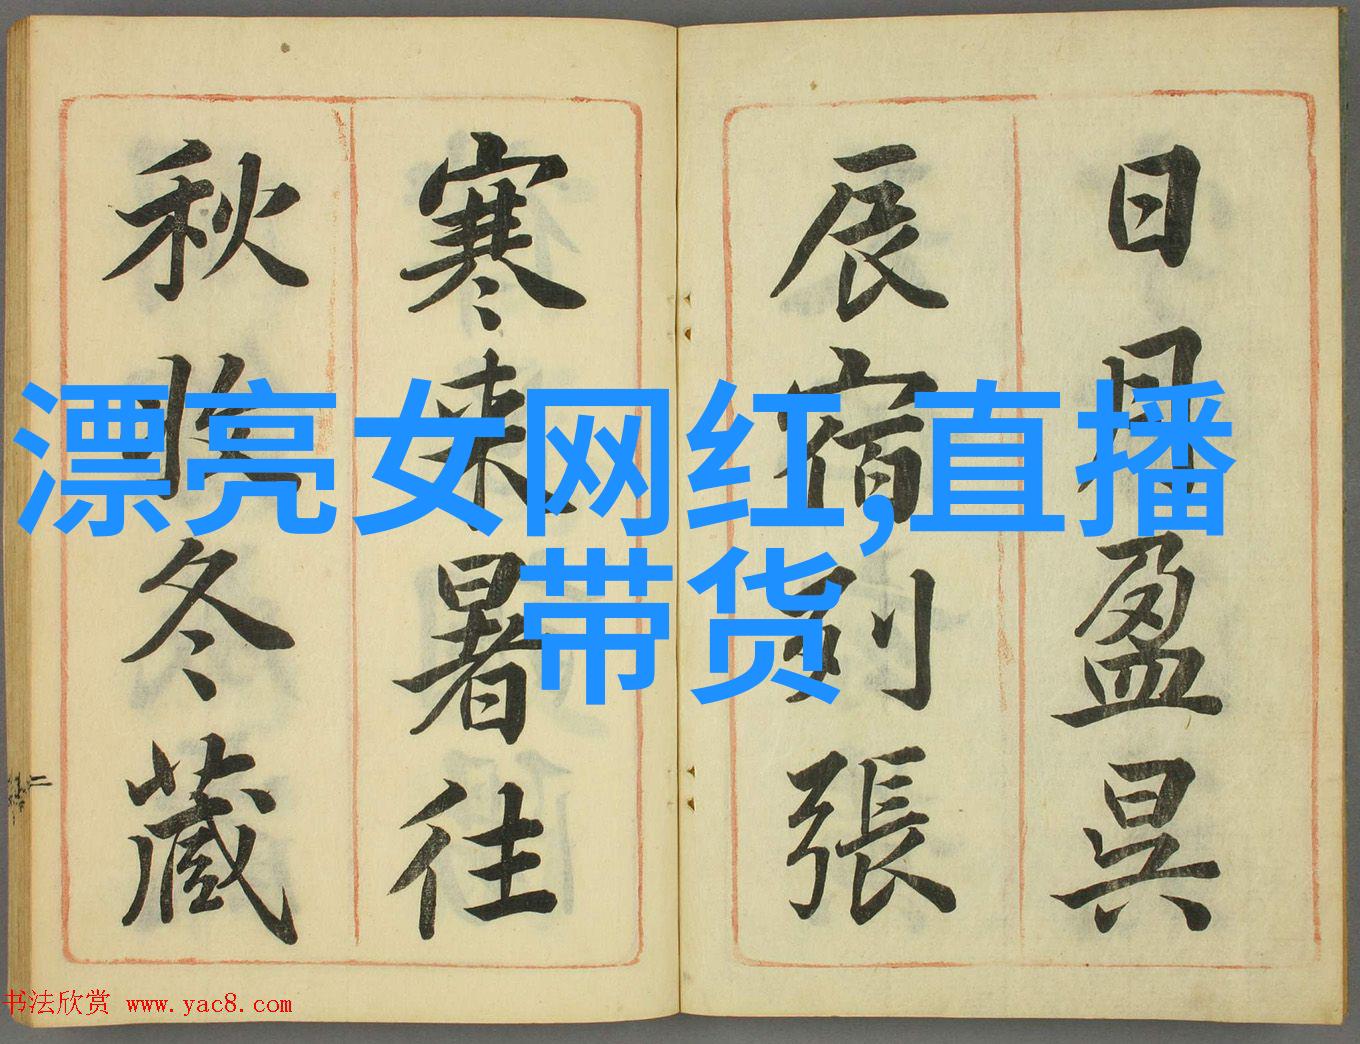 日月盈昃
辰宿列張
寒来暑往
秋收冬藏
漂亮女网红,直播
带货
书法欣赏 www.yac8.com